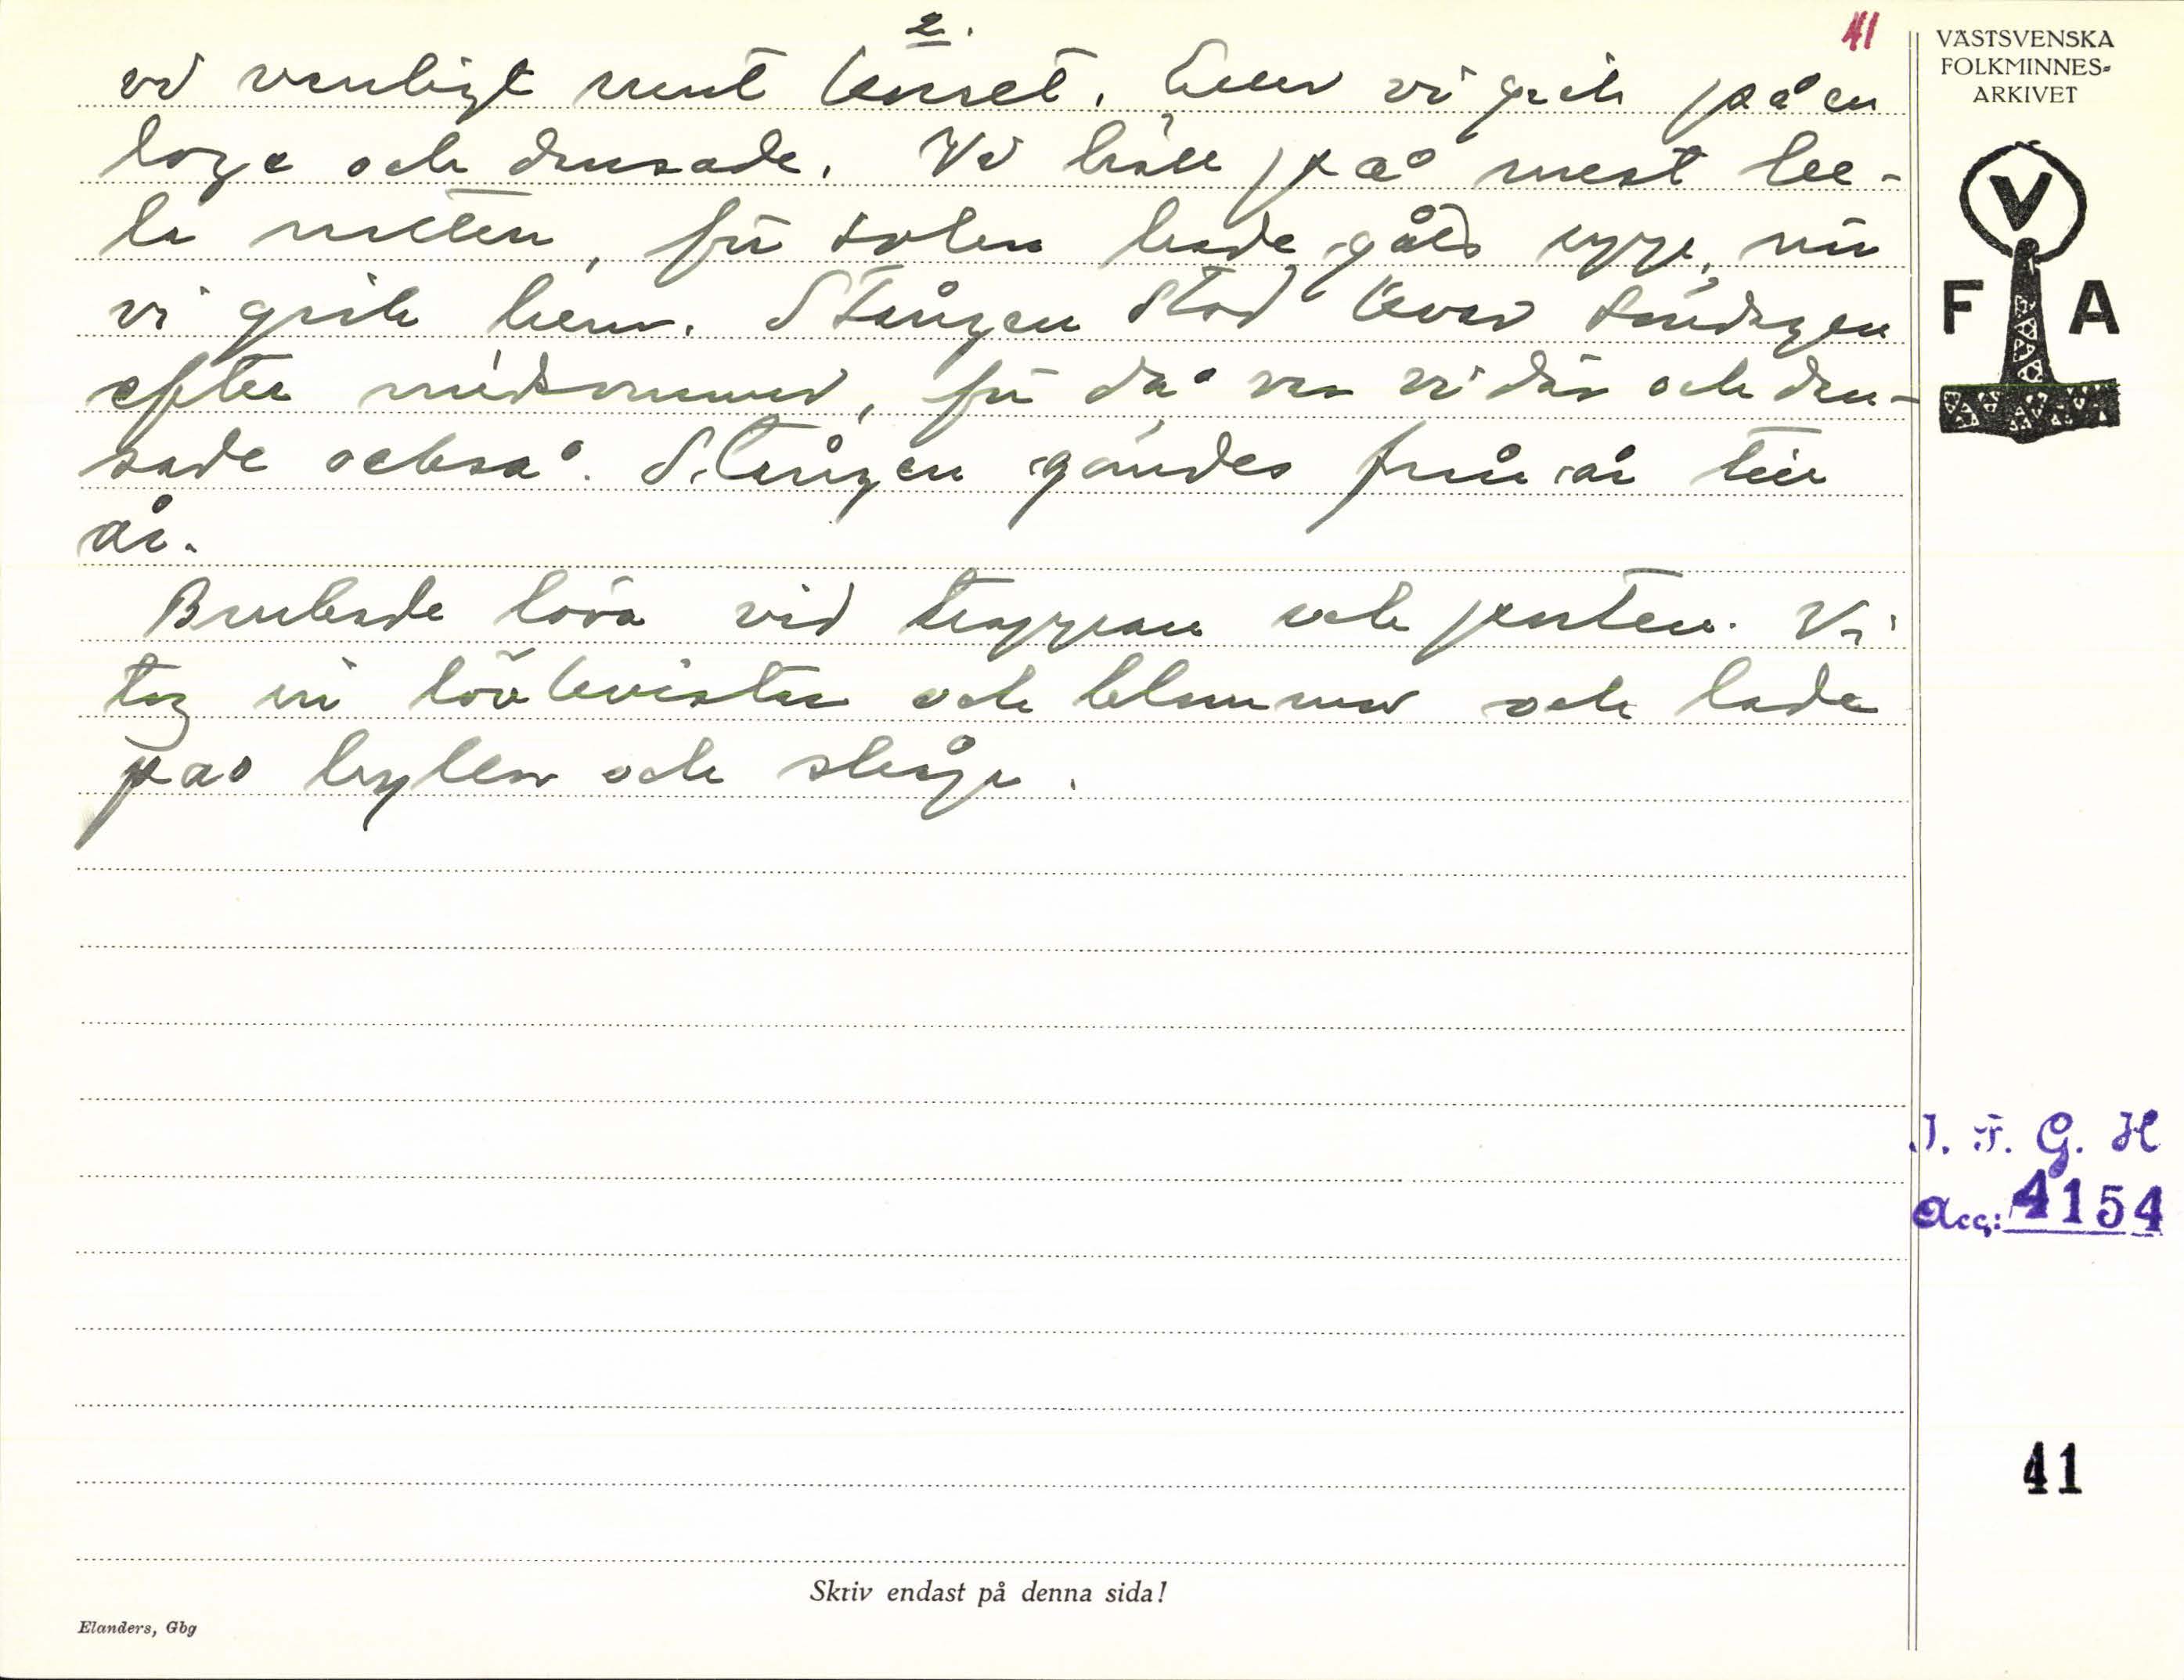 2.
41
vi vanligt runt korset. Sen vi gick på en
loge och dansade. Vi höll på mest he-
la natten, för solen hade gått upp, när
vi gick hem. Stången stod över söndagen
efter midsommar, för då var vi där och dan-
sade också. Stången gömdes från år till
år.
Brukade löva vid trappan och porten. Vi
tog in lövkvistar och blommor och lade
på hyllor och skåp.
VÄSTSVENSKA
FOLKMINNES-
ARKIVET
V
F A
I. F. G. H
Acc: 4154
41
Skriv endast på denna sida!
Elanders, Gbg